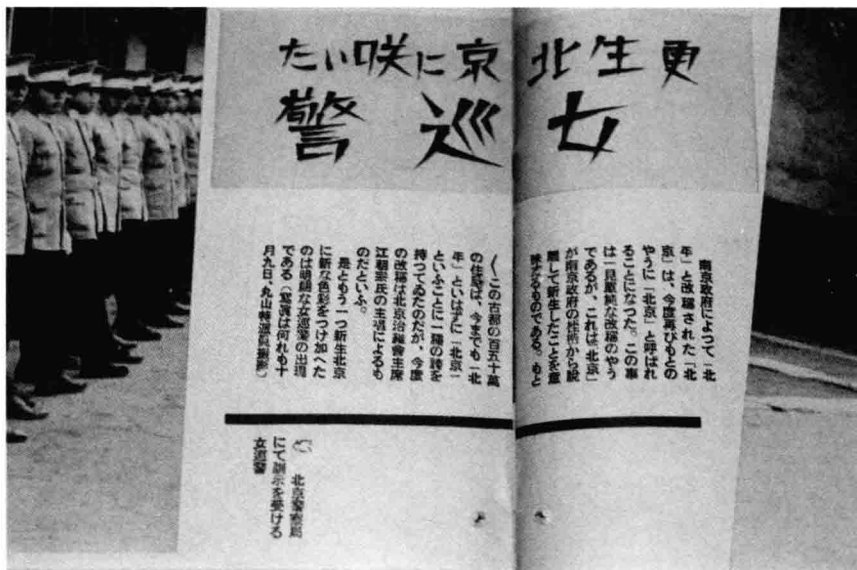 更生北京に咲いた
女巡警
南京政府によつて、「北
平」と改稱された「北
京」は、今度再びもとの
やうに「北京」と呼ばれ
ることになつた。この事
は一見單純な改稱のやう
であるが、これは「北京」
が南京政府の桎梏から脱
離して新生したことを意
味するものである。もと
〱この古都の百五十萬
の住民は、今までも「北
平」といはずに「北京」
といふことに一種の誇を
持つてゐたのだが、今度
の改稱は北京治維會主席
江朝宗氏の主唱によるも
のだといふ。
是ともう一つ新生北京
に新な色彩をつけ加へた
のは明朗な女巡警の出現
である（寫眞は何れも十
月九日、丸山特派員撮影）
北京警察局
にて訓示を受ける
女巡警